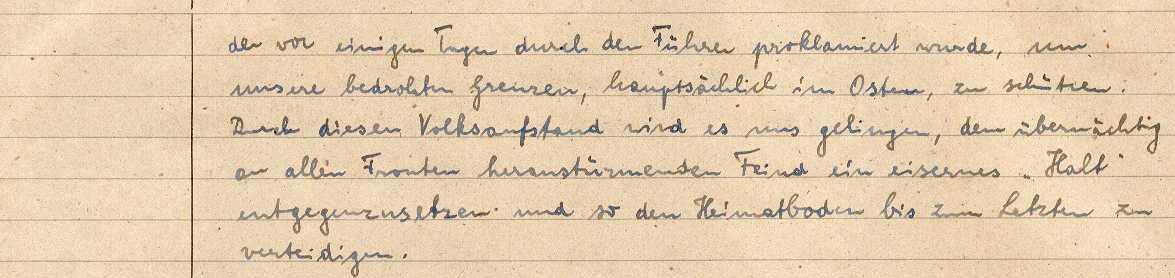 der vor einigen Tagen durch den Führer proklamiert wurde, um
unsere bedrohten Grenzen, hauptsächlich im Osten, zu schützen.
Durch diesen Volksaufstand wird es uns gelingen, dem übermächtig
an allen Fronten heranstürmenden Feind ein eisernes „Halt"
entgegenzusetzen und so den Heimatboden bis zum Letzten zu
verteidigen.